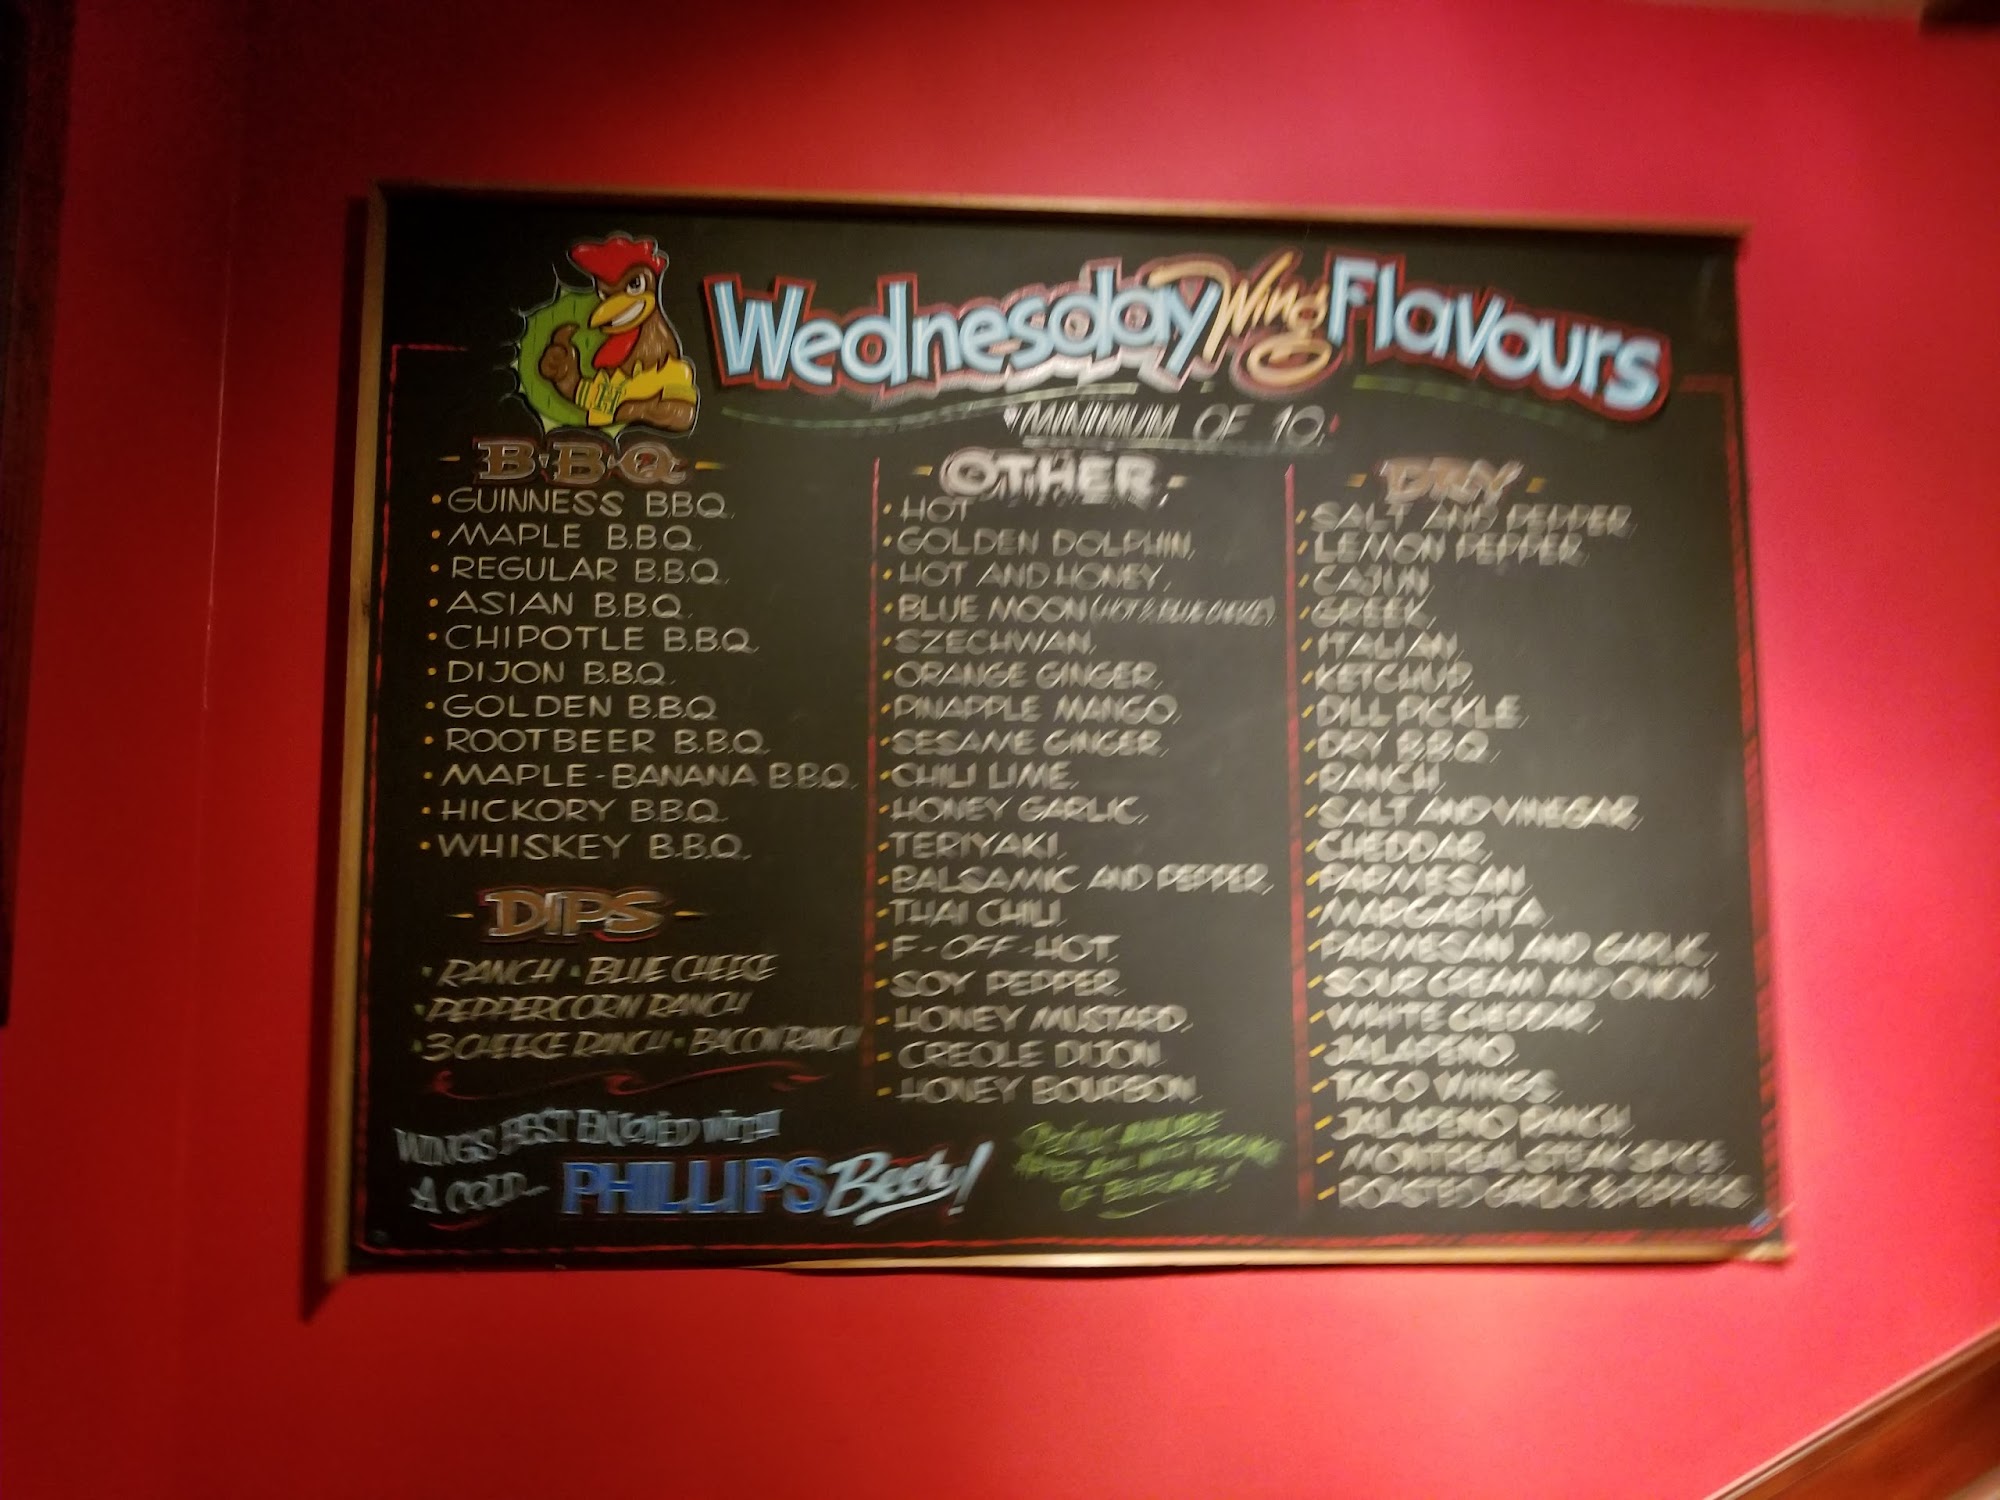 Wednesday Wing Flavours
"MINIMUM OF 10."
B·B·Q
• GUINNESS B.B.Q.
• MAPLE B.B.Q.
• REGULAR B.B.Q.
• ASIAN B.B.Q.
• CHIPOTLE B.B.Q.
• DIJON B.B.Q.
• GOLDEN B.B.Q.
• ROOTBEER B.B.Q.
• MAPLE-BANANA B.B.Q.
• HICKORY B.B.Q.
• WHISKEY B.B.Q.
DIPS
• RANCH • BLUE CHEESE
• PEPPERCORN RANCH
• 3 CHEESE RANCH • BACON RANCH
WINGS BEST ENJOYED WITH
A COLD...
PHILLIPS Beer!
OTHER
• HOT
• GOLDEN DOLPHIN.
• HOT AND HONEY.
• BLUE MOON (HOT & BLUE CHEESE)
• SZECHWAN.
• ORANGE GINGER.
• PINAPPLE MANGO.
• SESAME GINGER.
• CHILI LIME.
• HONEY GARLIC.
• TERIYAKI.
• BALSAMIC AND PEPPER.
• THAI CHILI.
• F-OFF-HOT.
• SOY PEPPER.
• HONEY MUSTARD.
• CREOLE DIJON.
• HONEY BOURBON.
OF BEVERAGE!
DRY
• SALT AND PEPPER.
• LEMON PEPPER.
• CAJUN.
• GREEK.
• ITALIAN.
• KETCHUP.
• DILL PICKLE.
• DRY B.B.Q.
• RANCH.
• SALT AND VINEGAR.
• CHEDDAR.
• PARMESAN.
• MARGARITA.
• PARMESAN AND GARLIC.
• SOUR CREAM AND ONION.
• WHITE CHEDDAR.
• JALAPENO.
• TACO WINGS.
• JALAPENO RANCH.
• MONTREAL STEAK SPICE.
• ROASTED GARLIC & PEPPERS.